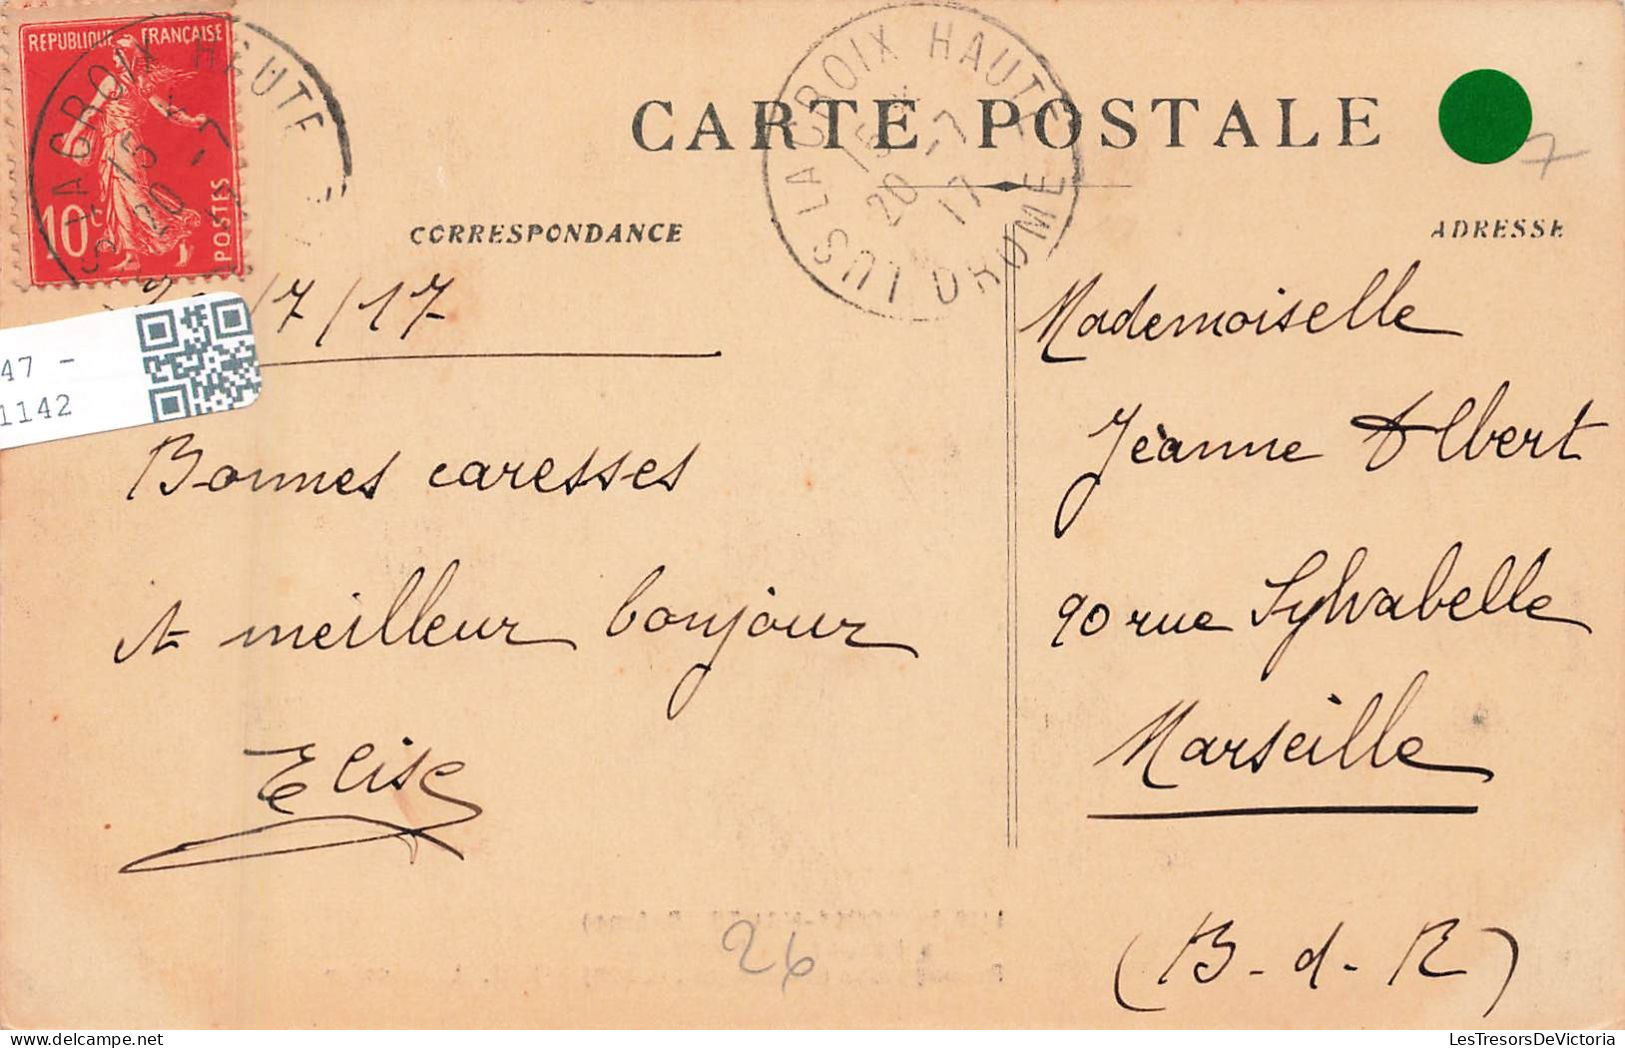 REPUBLIQUE FRANÇAISE
10c
POSTES
LUS LA CROIX HAUTE
15
20 -7
LUS LA CROIX HAUTE
15
20 -7
17
DROME
CARTE POSTALE
7
CORRESPONDANCE
ADRESSE
/7/17
47 -
1142
Bonnes caresses
et meilleur bonjour
Elise
Mademoiselle
Jeanne Albert
90 rue Sylvabelle
Marseille
(B-d-R)
26
LesTresorsDeVictoria